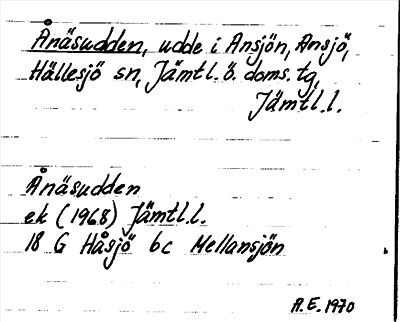 Ånäsudden, udde i Ansjön, Ansjö,
Hällesjö sn, Jämtl. ö. doms. tg,
Jämtl. l.
Ånäsudden
ek (1968) Jämtl. l.
18 G Håsjö bc Mellansjön
A.E. 1970